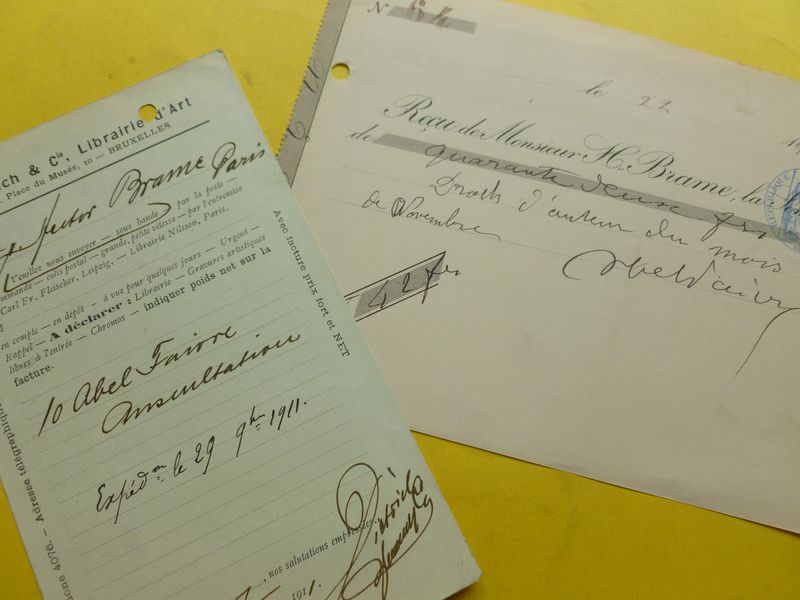 ch & Cie, Librairie d'Art
Place du Musée, 10 — BRUXELLES
Hector Brame Paris
Veuillez nous envoyer — sous bande — par la poste —
mmandé — colis postal — grande, petite vitesse — par l'entremise
Carl Fr. Fleischer, Leipzig, — Librairie Nilsson, Paris.
en compte — en dépôt — à vue pour quelques jours — Urgent —
Rappel — A déclarer : Librairie — Gravures artistiques
libres à l'entrée — Chromos — indiquer poids net sur la
facture.
10 Abel Faivre
Auscultation
Expédon le 29 9bre 1911.
, nos salutations empressées.
191 1.
Avec facture prix fort et NET
hone 4076. — Adresse télégraphique
No 64
le 22
Reçu de Monsieur H. Brame, la
de quarante deux frs
Droits d'auteur du mois
de Novembre
42 frs
Abel Faivre